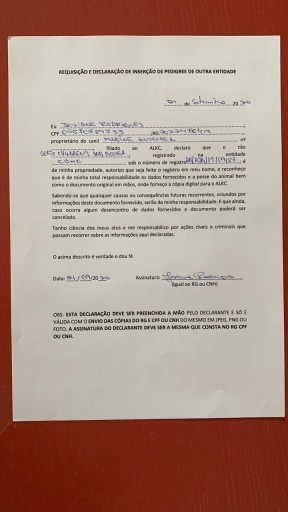 REQUISIÇÃO E DECLARAÇÃO DE INSERÇÃO DE PEDIGREE DE OUTRA ENTIDADE
01 de Setembro 2020
Eu JOSIANE RODRIGUES,
CPF
proprietário do canil nº
filiado ao AUKC, declaro que o cão
registrado na entidade
CBKC sob o número de registro é
de minha propriedade, autorizo que seja feito o registro em meu nome, e reconheço
que é de minha total responsabilidade os dados fornecidos e a posse do animal bem
como o documento original em mãos, onde forneço a cópia digital para o AUKC.
Sabendo-se que quaisquer causas ou consequências futuras recorrentes, oriundas por
informações deste documento fornecido, serão de minha responsabilidade. E que ainda,
caso ocorra algum desencontro de dados fornecidos o documento poderá ser
cancelado.
Tenho ciência dos meus atos e me responsabilizo por ações civeis e criminais que
possam recorrer sobre as informações aqui declaradas.
O acima descrito é verdade e dou fé
Data: 01/09/2020 Assinatura: Josiane Rodrigues
(Igual ao RG ou CNH)
OBS: ESTA DECLARAÇÃO DEVE SER PREENCHIDA A MÃO PELO DECLARANTE E SÓ É
VÁLIDA COM O ENVIO DAS CÓPIAS DO RG E CPF OU CNH DO MESMO EM JPEG, PNG OU
FOTO. A ASSINATURA DO DECLARANTE DEVE SER A MESMA QUE CONSTA NO RG CPF
OU CNH.